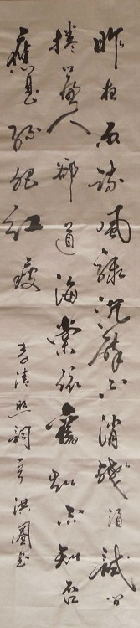 昨夜雨疏風驟沉醉不消殘酒試問
捲簾人卻道海棠依舊知否知否
應是綠肥紅瘦
李清照詞 洪 書